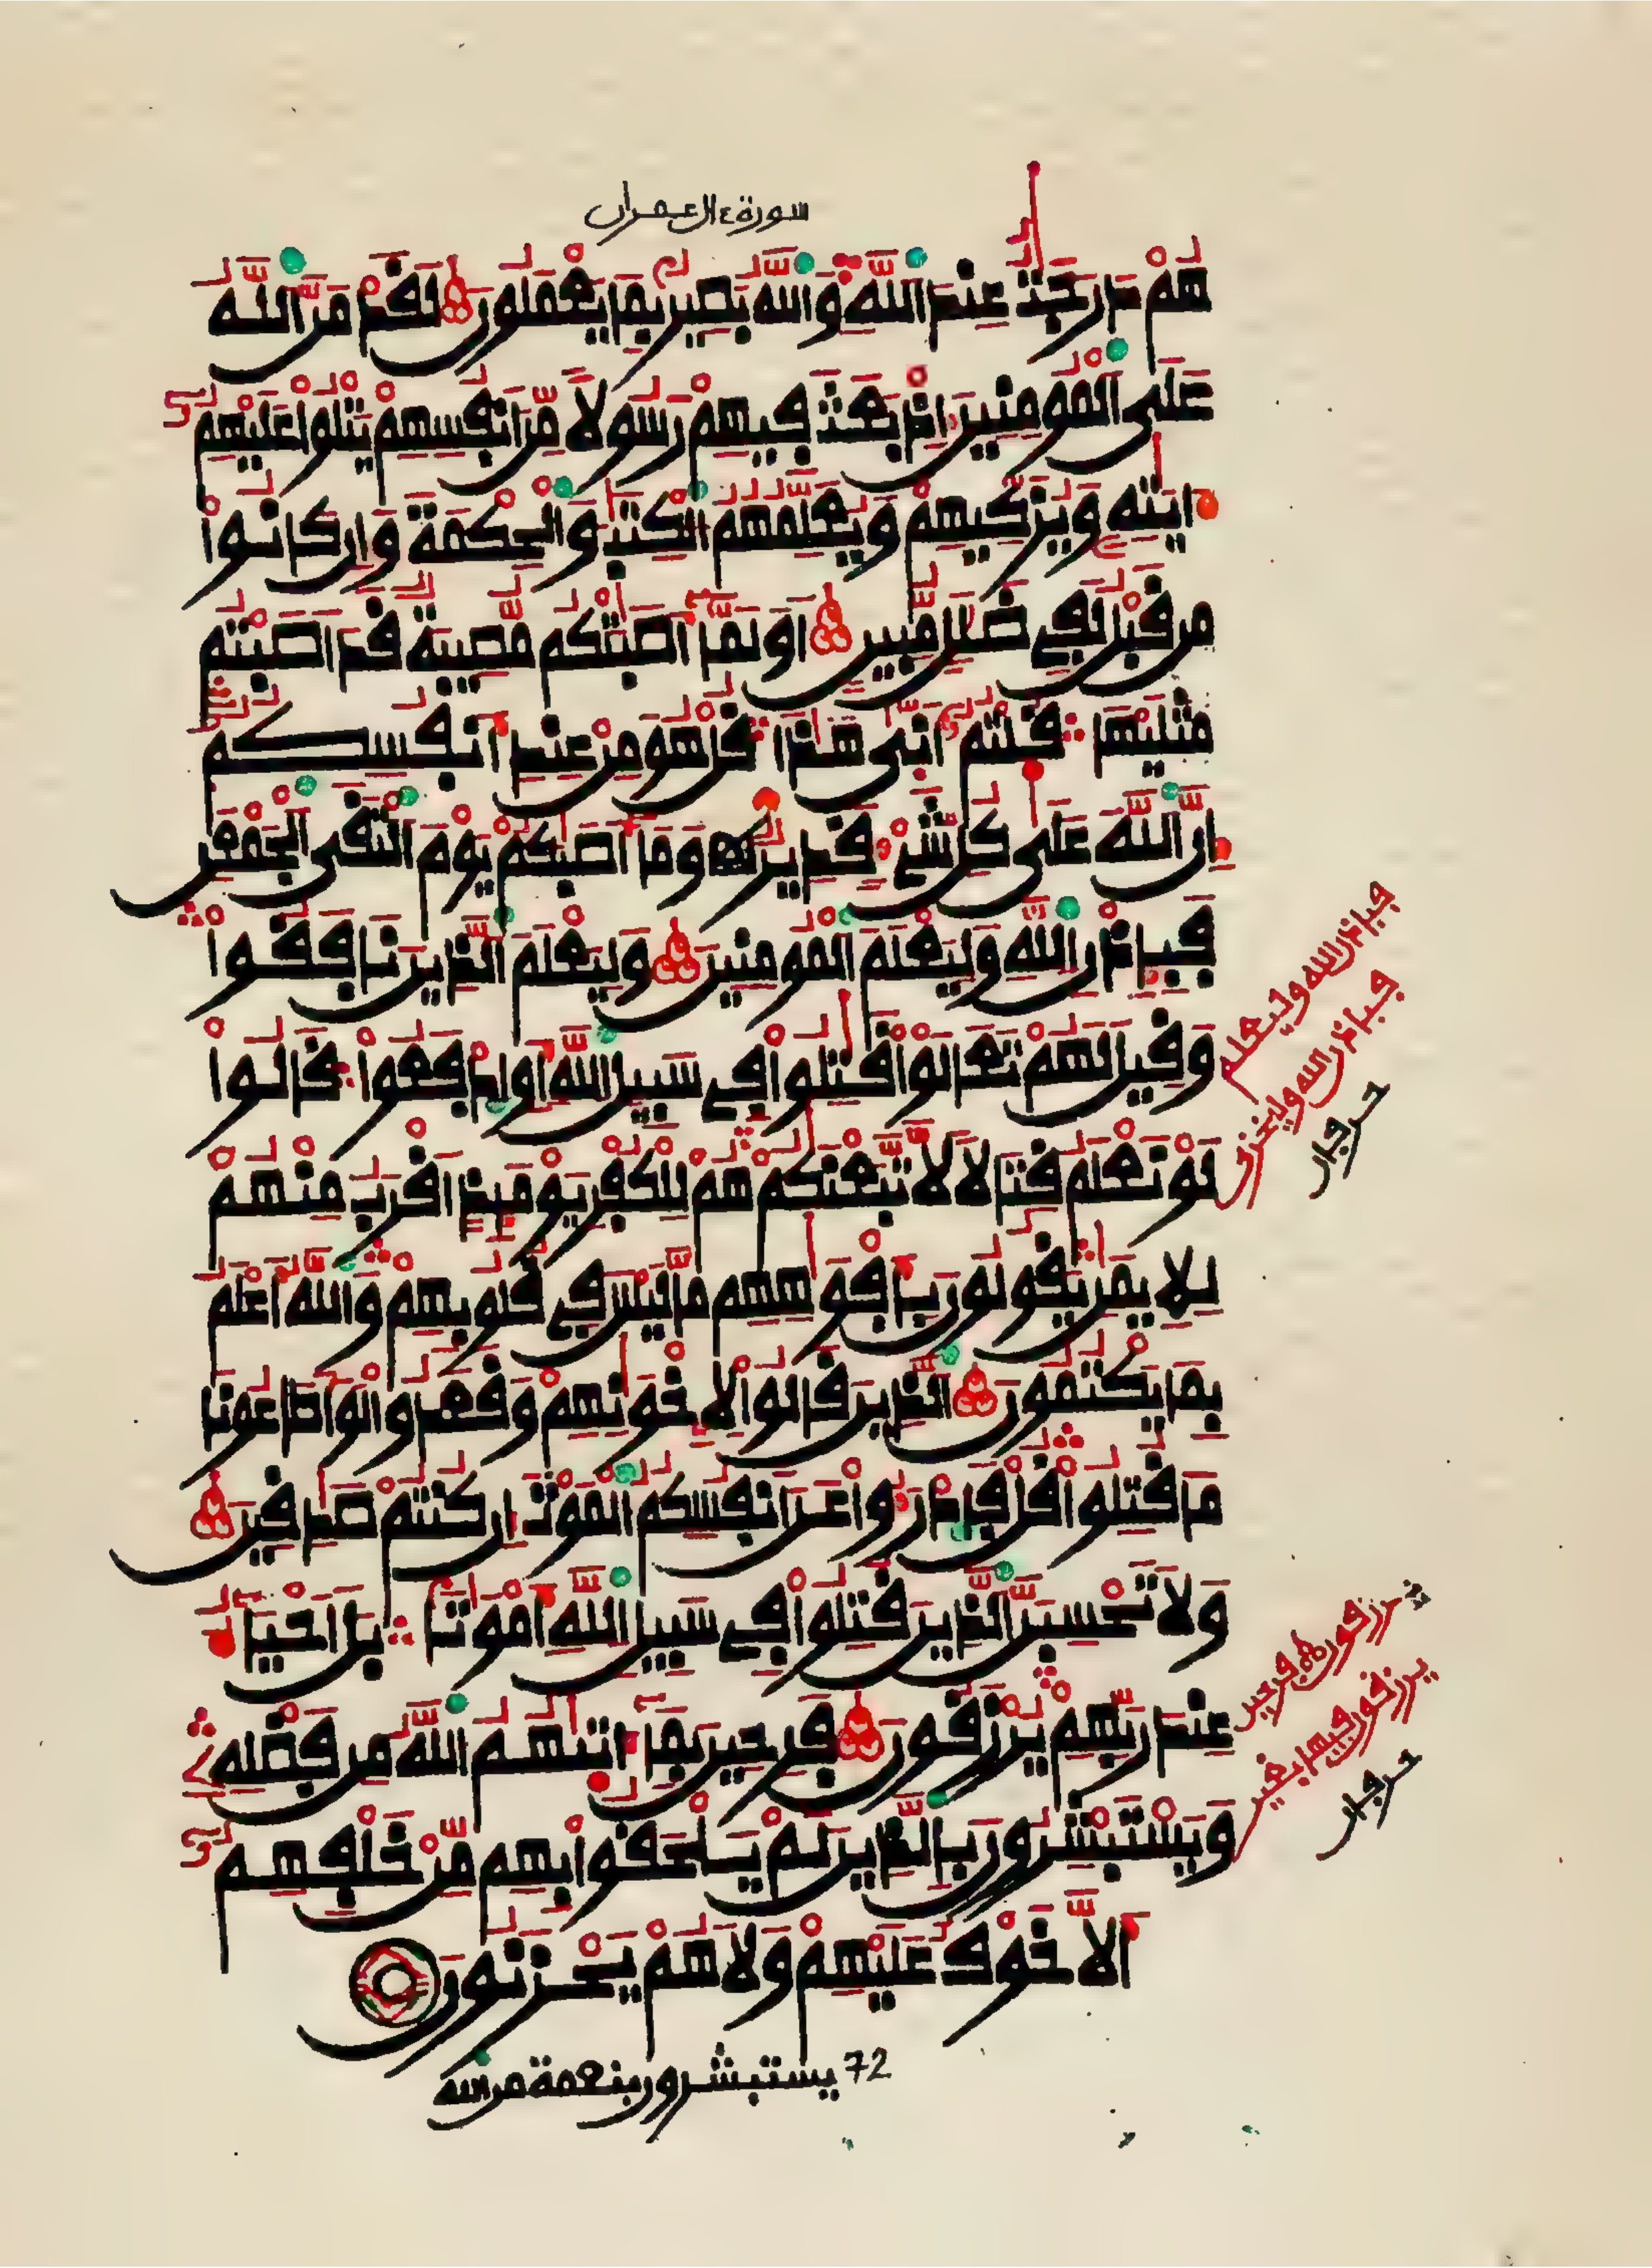 سورة ءال عمران
هُمْ دَرَجَٰتٌ عِندَ اَللَّهِ وَاللَّهُ بَصِيرٌ بِمَا يَعْمَلُونَ لَقَدْ مَنَّ اَللَّهُ
عَلَى اَلْمُومِنِينَ إِذْ بَعَثَ فِيهِمْ رَسُولًا مِّنَ اَنفُسِهِمْ يَتْلُوا عَلَيْهِمُ
ءَايَٰتِهِ وَيُزَكِّيهِمْ وَيُعَلِّمُهُمُ اَلْكِتَٰبَ وَالْحِكْمَةَ وَإِن كَانُوا
مِن قَبْلُ لَفِى ضَلَٰلٍ مُّبِينٍ أَوَلَمَّا أَصَٰبَتْكُم مُّصِيبَةٌ قَدَ اَصَبْتُم
مِّثْلَيْهَا قُلْتُمُ أَنَّىٰ هَٰذَا قُلْ هُوَ مِنْ عِندِ أَنفُسِكُمُ
إِنَّ اَللَّهَ عَلَىٰ كُلِّ شَىْءٍ قَدِيرٌ وَمَا أَصَٰبَكُمْ يَوْمَ اَلْتَقَى اَلْجَمْعَٰنِ
فَبِإِذْنِ اِللَّهِ وَلِيَعْلَمَ اَلْمُومِنِينَ وَلِيَعْلَمَ اَلَّذِينَ نَافَقُوا
وَقِيلَ لَهُمْ تَعَالَوْا قَٰتِلُوا فِى سَبِيلِ اِللَّهِ أَوِ اِدْفَعُوا قَالُوا
لَوْ نَعْلَمُ قِتَالًا لَّاتَّبَعْنَٰكُمْ هُمْ لِلْكُفْرِ يَوْمَئِذٍ اَقْرَبُ مِنْهُمْ
لِلْإِيمَٰنِ يَقُولُونَ بِأَفْوَٰهِهِم مَّا لَيْسَ فِى قُلُوبِهِمْ وَاللَّهُ أَعْلَمُ
بِمَا يَكْتُمُونَ اَلَّذِينَ قَالُوا لِإِخْوَٰنِهِمْ وَقَعَدُوا لَوَ اَطَاعُونَا
مَا قُتِلُوا قُلْ فَادْرَءُوا عَنَ اَنفُسِكُمُ اَلْمَوْتَ إِن كُنتُمْ صَٰدِقِينَ
وَلَا تَحْسِبَنَّ اَلَّذِينَ قُتِلُوا فِى سَبِيلِ اِللَّهِ أَمْوَٰتًا بَلَ اَحْيَاءٌ
عِندَ رَبِّهِمْ يُرْزَقُونَ فَرِحِينَ بِمَا ءَاتَىٰهُمُ اَللَّهُ مِن فَضْلِهِ
وَيَسْتَبْشِرُونَ بِالَّذِينَ لَمْ يَلْحَقُوا بِهِم مِّنْ خَلْفِهِمُ
أَلَّا خَوْفٌ عَلَيْهِمْ وَلَا هُمْ يَحْزَنُونَ
72 يستبشرون بنعمة من الله
فبإذن الله وليعلم
فبإذن الله وليخزى
حرفان
يرزقون فرحين
يرزقون فيها بغير
حرفان